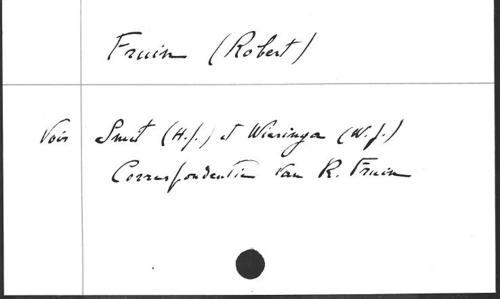 Fruin (Robert)
Voir Smit (H.J.) et Wieringa (W.J.)
Correspondentie van R. Fruin